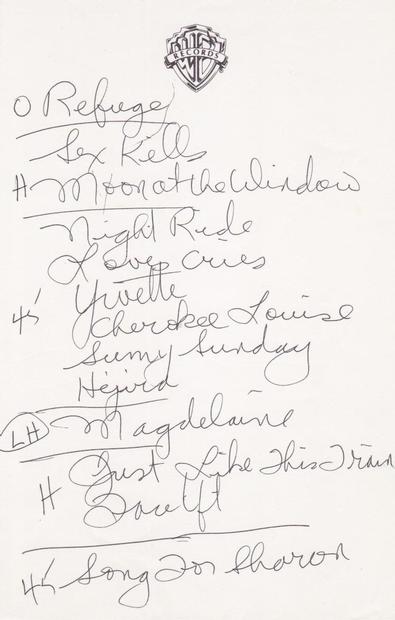 WB
RECORDS
O Refuge
Sex Kills
H Moon at the Window
Night Ride
Love Cries
Yvette
45' Cherokee Louise
Sunny Sunday
Hejira
LH Magdelaine
Just Like This Train
H Face Lift
45' Song for Sharon